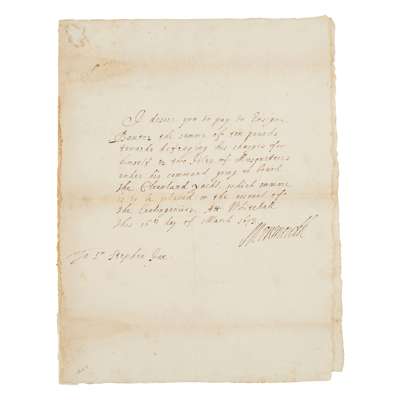 I desire you to pay to Ensigne
the summe of ten pounds
towards defraying his charges for
himself & two files of Musqueteers
under his command going on board
the Cleaveland yacht, which summe
is to be placed on the account of
the Contingencies. At Whitehall
this 16th day of March 1673
Monmouth
To Sr Stephen Fox